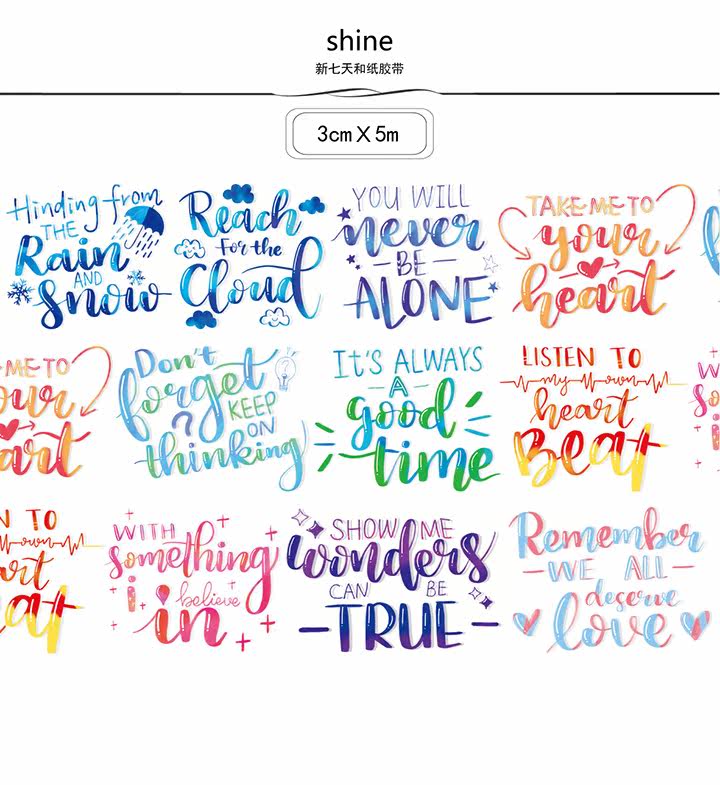 shine
新七天和纸胶带
3cm X 5m
Hinding from
THE
Rain
AND
Snow
Reach
For the
Cloud
YOU WILL
never
BE
ALONE
TAKE ME TO
your
heart
ME TO
our
art
Don't
forget
KEEP
ON
thinking
IT'S ALWAYS
A
good
time
LISTEN TO
my own
heart
Beat
N TO
own
art
at
WITH
something
i believe
in
SHOW ME
wonders
CAN BE
TRUE
Remember
WE ALL
deserve
love